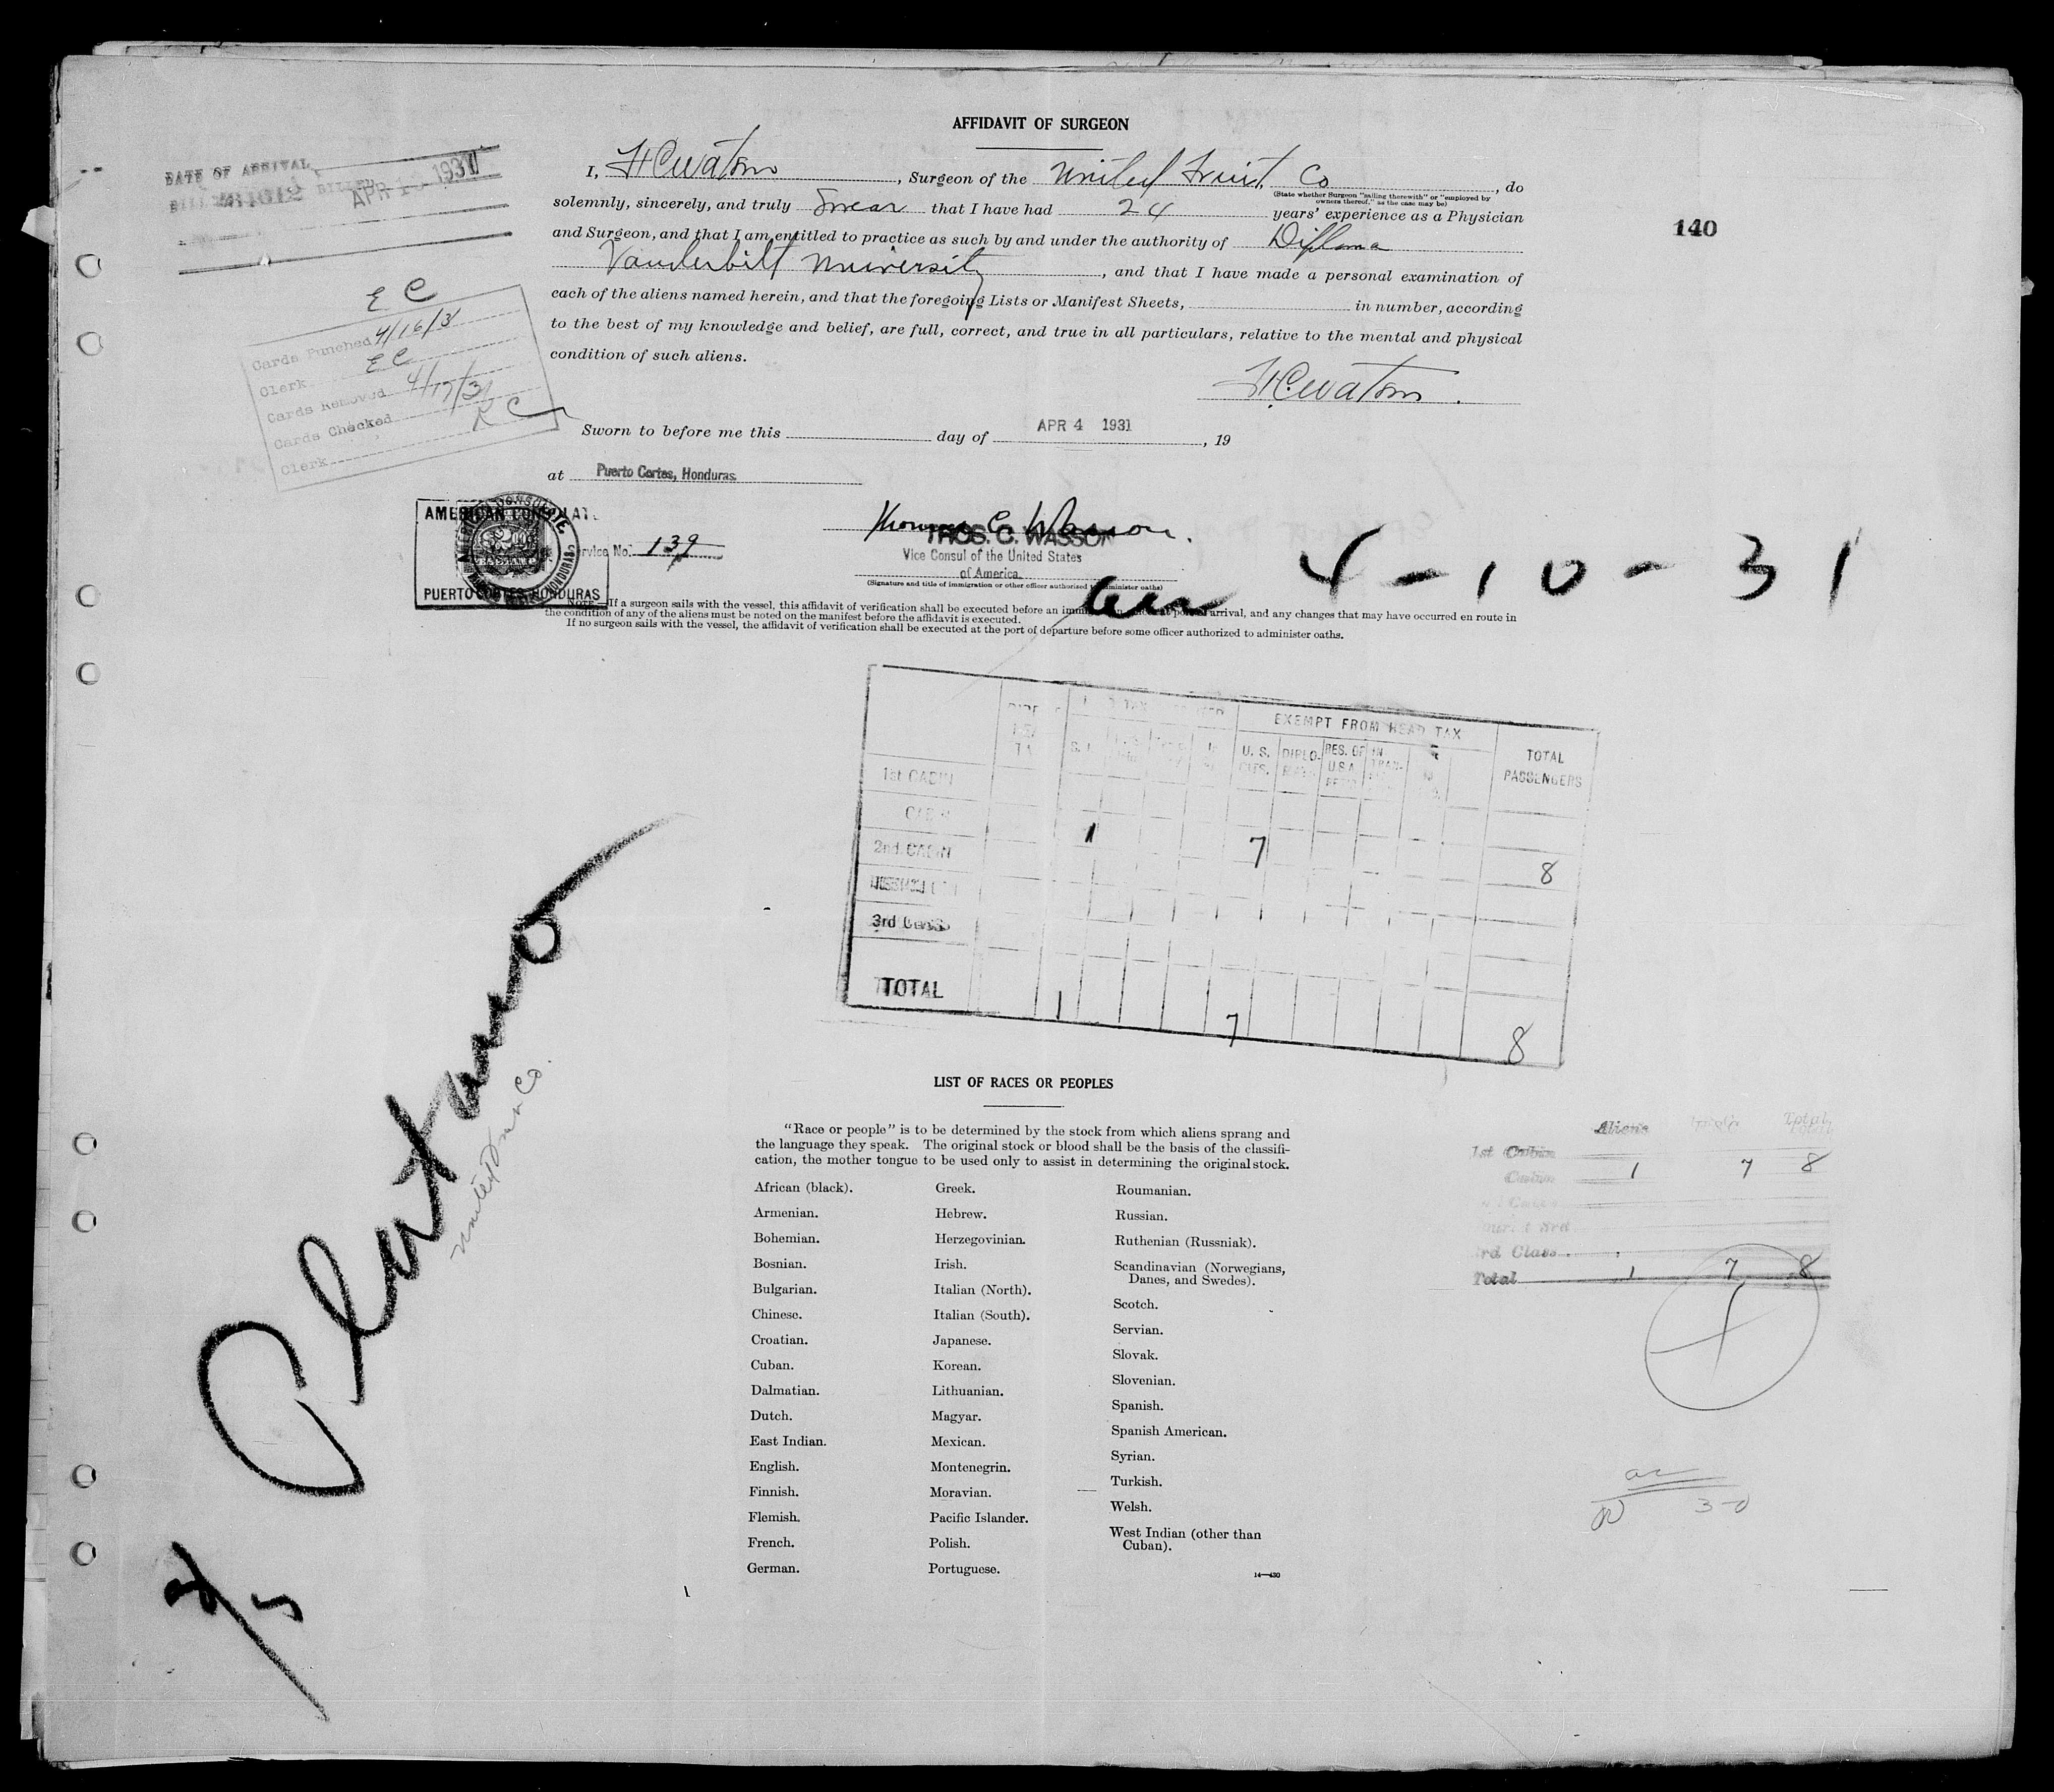 AFFIDAVIT OF SURGEON
I, H C Watson, Surgeon of the United Fruit Co, do
(State whether Surgeon "sailing therewith" or "employed by
owners thereof," as the case may be)
solemnly, sincerely, and truly Swear that I have had 24 years' experience as a Physician
and Surgeon, and that I am entitled to practice as such by and under the authority of Diploma
Vanderbilt University, and that I have made a personal examination of
each of the aliens named herein, and that the foregoing Lists or Manifest Sheets, in number, according
to the best of my knowledge and belief, are full, correct, and true in all particulars, relative to the mental and physical
condition of such aliens.
H.C. Watson.
DATE OF ARRIVAL
APR 1931
140
E C
Cards Punched 4/16/31
Clerk E C
Cards Removed 4/17/31
Cards Checked R C
Clerk
Sworn to before me this day of APR 4 1931, 19
at Puerto Cortes, Honduras.
AMERICAN CONSULATE
PUERTO CORTES, HONDURAS
Service No. 139
Thomas C. Wasson.
THOS. C. WASSON
Vice Consul of the United States
of America.
(Signature and title of immigration or other officer authorized to administer oaths)
4-10-31
NOTE.—If a surgeon sails with the vessel, this affidavit of verification shall be executed before an arrival, and any changes that may have occurred en route in
the condition of any of the aliens must be noted on the manifest before the affidavit is executed.
If no surgeon sails with the vessel, the affidavit of verification shall be executed at the port of departure before some officer authorized to administer oaths.
EXEMPT FROM HEAD TAX
U. S. CITS. DIPLO- RES. OF U.S.A. IN TRAN- TOTAL PASSENGERS
1st CABIN
CABIN 1 7 8
2nd CABIN
3rd Class
TOTAL 1 7 8
Platano
United Fruit Co.
LIST OF RACES OR PEOPLES
"Race or people" is to be determined by the stock from which aliens sprang and
the language they speak. The original stock or blood shall be the basis of the classifi-
cation, the mother tongue to be used only to assist in determining the original stock.
African (black).
Armenian.
Bohemian.
Bosnian.
Bulgarian.
Chinese.
Croatian.
Cuban.
Dalmatian.
Dutch.
East Indian.
English.
Finnish.
Flemish.
French.
German.
Greek.
Hebrew.
Herzegovinian.
Irish.
Italian (North).
Italian (South).
Japanese.
Korean.
Lithuanian.
Magyar.
Mexican.
Montenegrin.
Moravian.
Pacific Islander.
Polish.
Portuguese.
Roumanian.
Russian.
Ruthenian (Russniak).
Scandinavian (Norwegians,
Danes, and Swedes).
Scotch.
Servian.
Slovak.
Slovenian.
Spanish.
Spanish American.
Syrian.
Turkish.
Welsh.
West Indian (other than
Cuban).
14—430
Aliens Total
1st Cabin
Cabin 1 7 8
3rd Class
Total 1 7 8